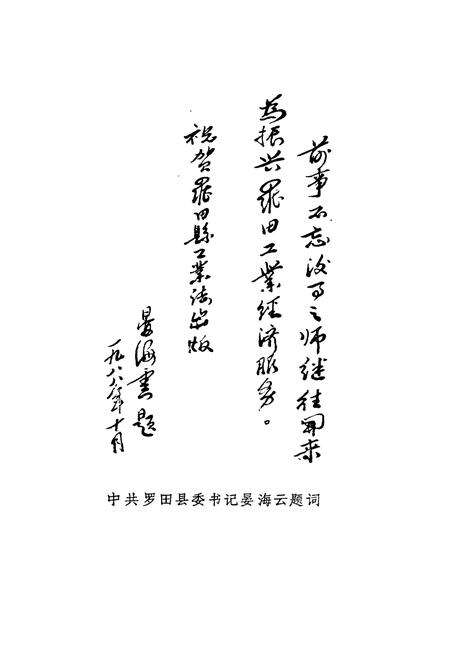 前事不忘后事之师继往开来
为振兴罗田工业经济服务。
祝贺罗田縣工業志出版
晏海雲題
一九八六年十月
中共罗田县委书记晏海云题词